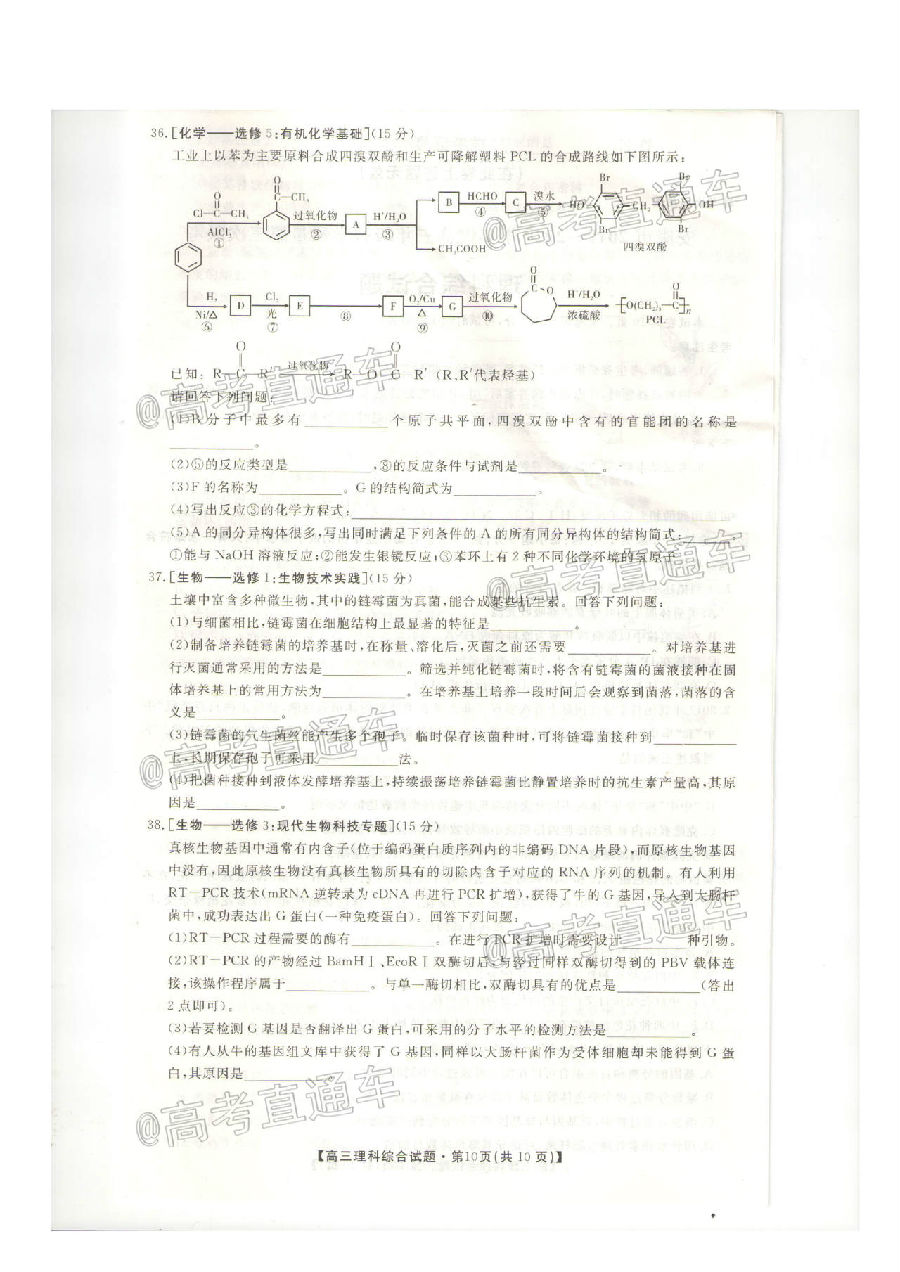 36.［化学——选修 5:有机化学基础］(15 分)
工业上以苯为主要原料合成四溴双酚和生产可降解塑料 PCL 的合成路线如下图所示:
O
Cl—C—CH₃
AlCl₃
①
O
C—CH₃
过氧化物
②
A
H⁺/H₂O
③
B
HCHO
④
C
溴水
⑤
HO
Br
Br
CH₂
Br
OH
四溴双酚
CH₃COOH
H₂
Ni/△
D
Cl₂
光
⑦
E
⑧
F
O₂/Cu
△
⑨
G
过氧化物
⑩
O
O
H⁺/H₂O
浓硫酸
O
[O(CH₂)₅C]n
PCL
O O
已知: R—C—R′ 过氧化物 R—O—C—R′ (R、R′代表烃基)
请回答下列问题:
(1)B 分子中最多有 个原子共平面,四溴双酚中含有的官能团的名称是
。
(2)⑤的反应类型是 ,⑧的反应条件与试剂是 。
(3)F 的名称为 。G 的结构简式为 。
(4)写出反应③的化学方程式:
(5)A 的同分异构体很多,写出同时满足下列条件的 A 的所有同分异构体的结构简式:
①能与 NaOH 溶液反应;②能发生银镜反应;③苯环上有 2 种不同化学环境的氢原子
37.［生物——选修 1:生物技术实践］(15 分)
土壤中富含多种微生物,其中的链霉菌为真菌,能合成某些抗生素。回答下列问题:
(1)与细菌相比,链霉菌在细胞结构上最显著的特征是 。
(2)制备培养链霉菌的培养基时,在称量、溶化后,灭菌之前还需要 。对培养基进
行灭菌通常采用的方法是 。筛选并纯化链霉菌时,将含有链霉菌的菌液接种在固
体培养基上的常用方法为 。在培养基上培养一段时间后会观察到菌落,菌落的含
义是 。
(3)链霉菌的气生菌丝能产生多个孢子。临时保存该菌种时,可将链霉菌接种到
上,长期保存孢子可采用 法。
(4)把菌种接种到液体发酵培养基上,持续振荡培养链霉菌比静置培养时的抗生素产量高,其原
因是 。
38.［生物——选修 3:现代生物科技专题］(15 分)
真核生物基因中通常有内含子(位于编码蛋白质序列内的非编码 DNA 片段),而原核生物基因
中没有,因此原核生物没有真核生物所具有的切除内含子对应的 RNA 序列的机制。有人利用
RT—PCR 技术(mRNA 逆转录为 cDNA 再进行 PCR 扩增),获得了牛的 G 基因,导入到大肠杆
菌中,成功表达出 G 蛋白(一种免疫蛋白)。回答下列问题:
(1)RT—PCR 过程需要的酶有 。在进行 PCR 扩增时需要设计 种引物。
(2)RT—PCR 的产物经过 BamHⅠ、EcoRⅠ双酶切后,与经过同样双酶切得到的 PBV 载体连
接,该操作程序属于 。与单一酶切相比,双酶切具有的优点是 (答出
2 点即可)。
(3)若要检测 G 基因是否翻译出 G 蛋白,可采用的分子水平的检测方法是 。
(4)有人从牛的基因组文库中获得了 G 基因,同样以大肠杆菌作为受体细胞却未能得到 G 蛋
白,其原因是 。
@高考直通车
@高考直通车
@高考直通车
@高考直通车
@高考直通车
@高考直通车
【高三理科综合试题·第10页(共 10 页)】